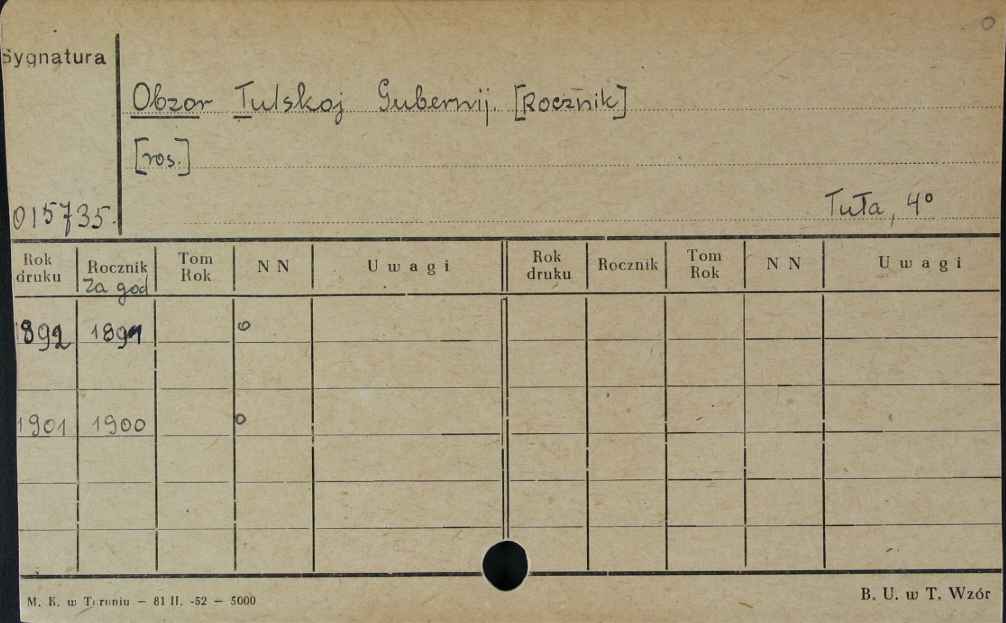 0
Sygnatura
Obzor Tulskoj Gubernij. [Rocznik]
[ros.]
015735.
Tuła, 4°
Rok druku Rocznik Za god Tom Rok N N Uwagi Rok druku Rocznik Tom Rok N N Uwagi
1892 1891 0
1901 1900 0
M. K. w Toruniu — 81 II. -52 — 5000
B. U. w T. Wzór